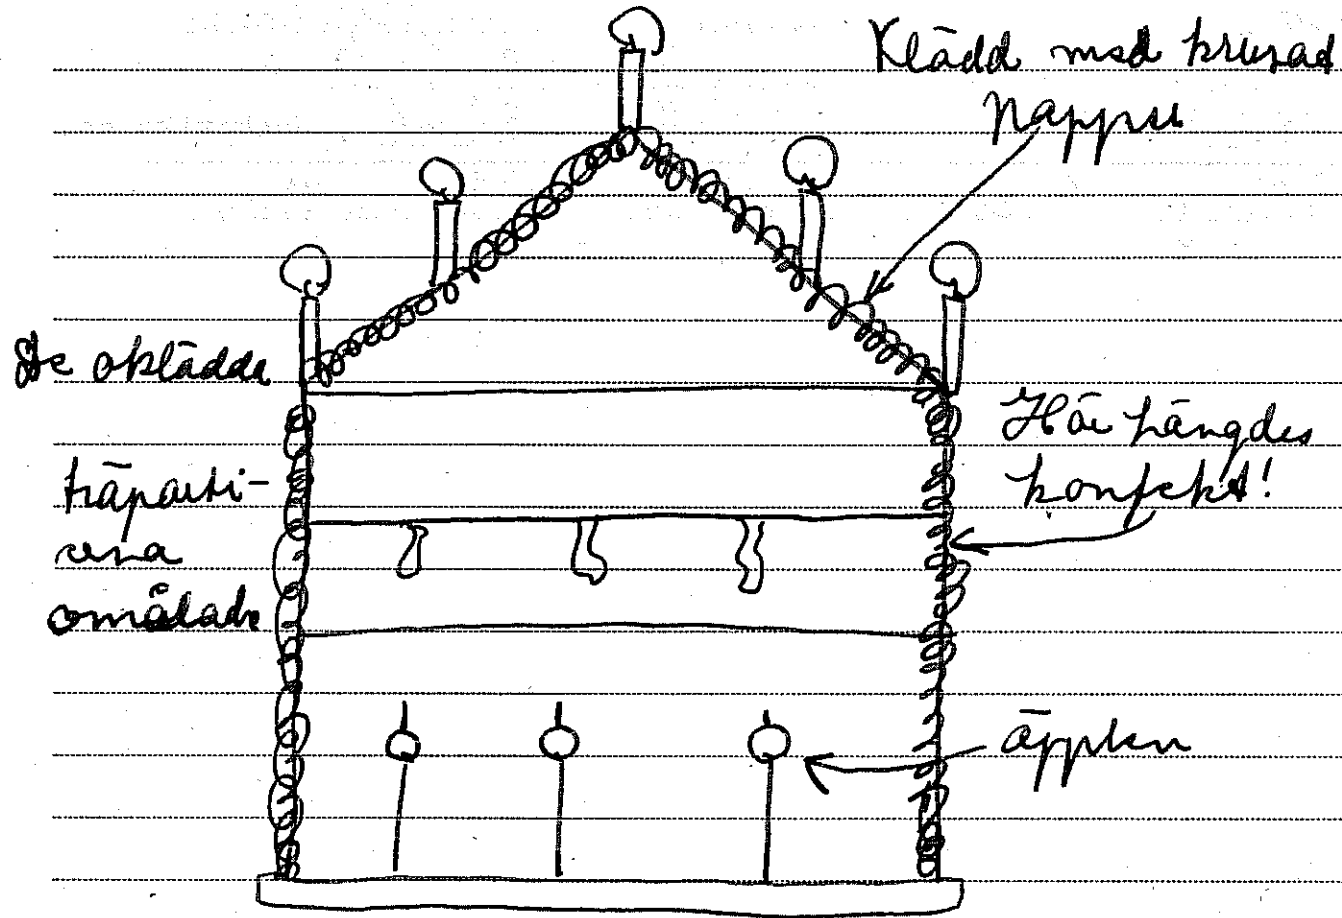 Klädd med krusad
pappu
De oklädda
träparti-
erna
omålade
Här hängdes
konfekt!
äpplen